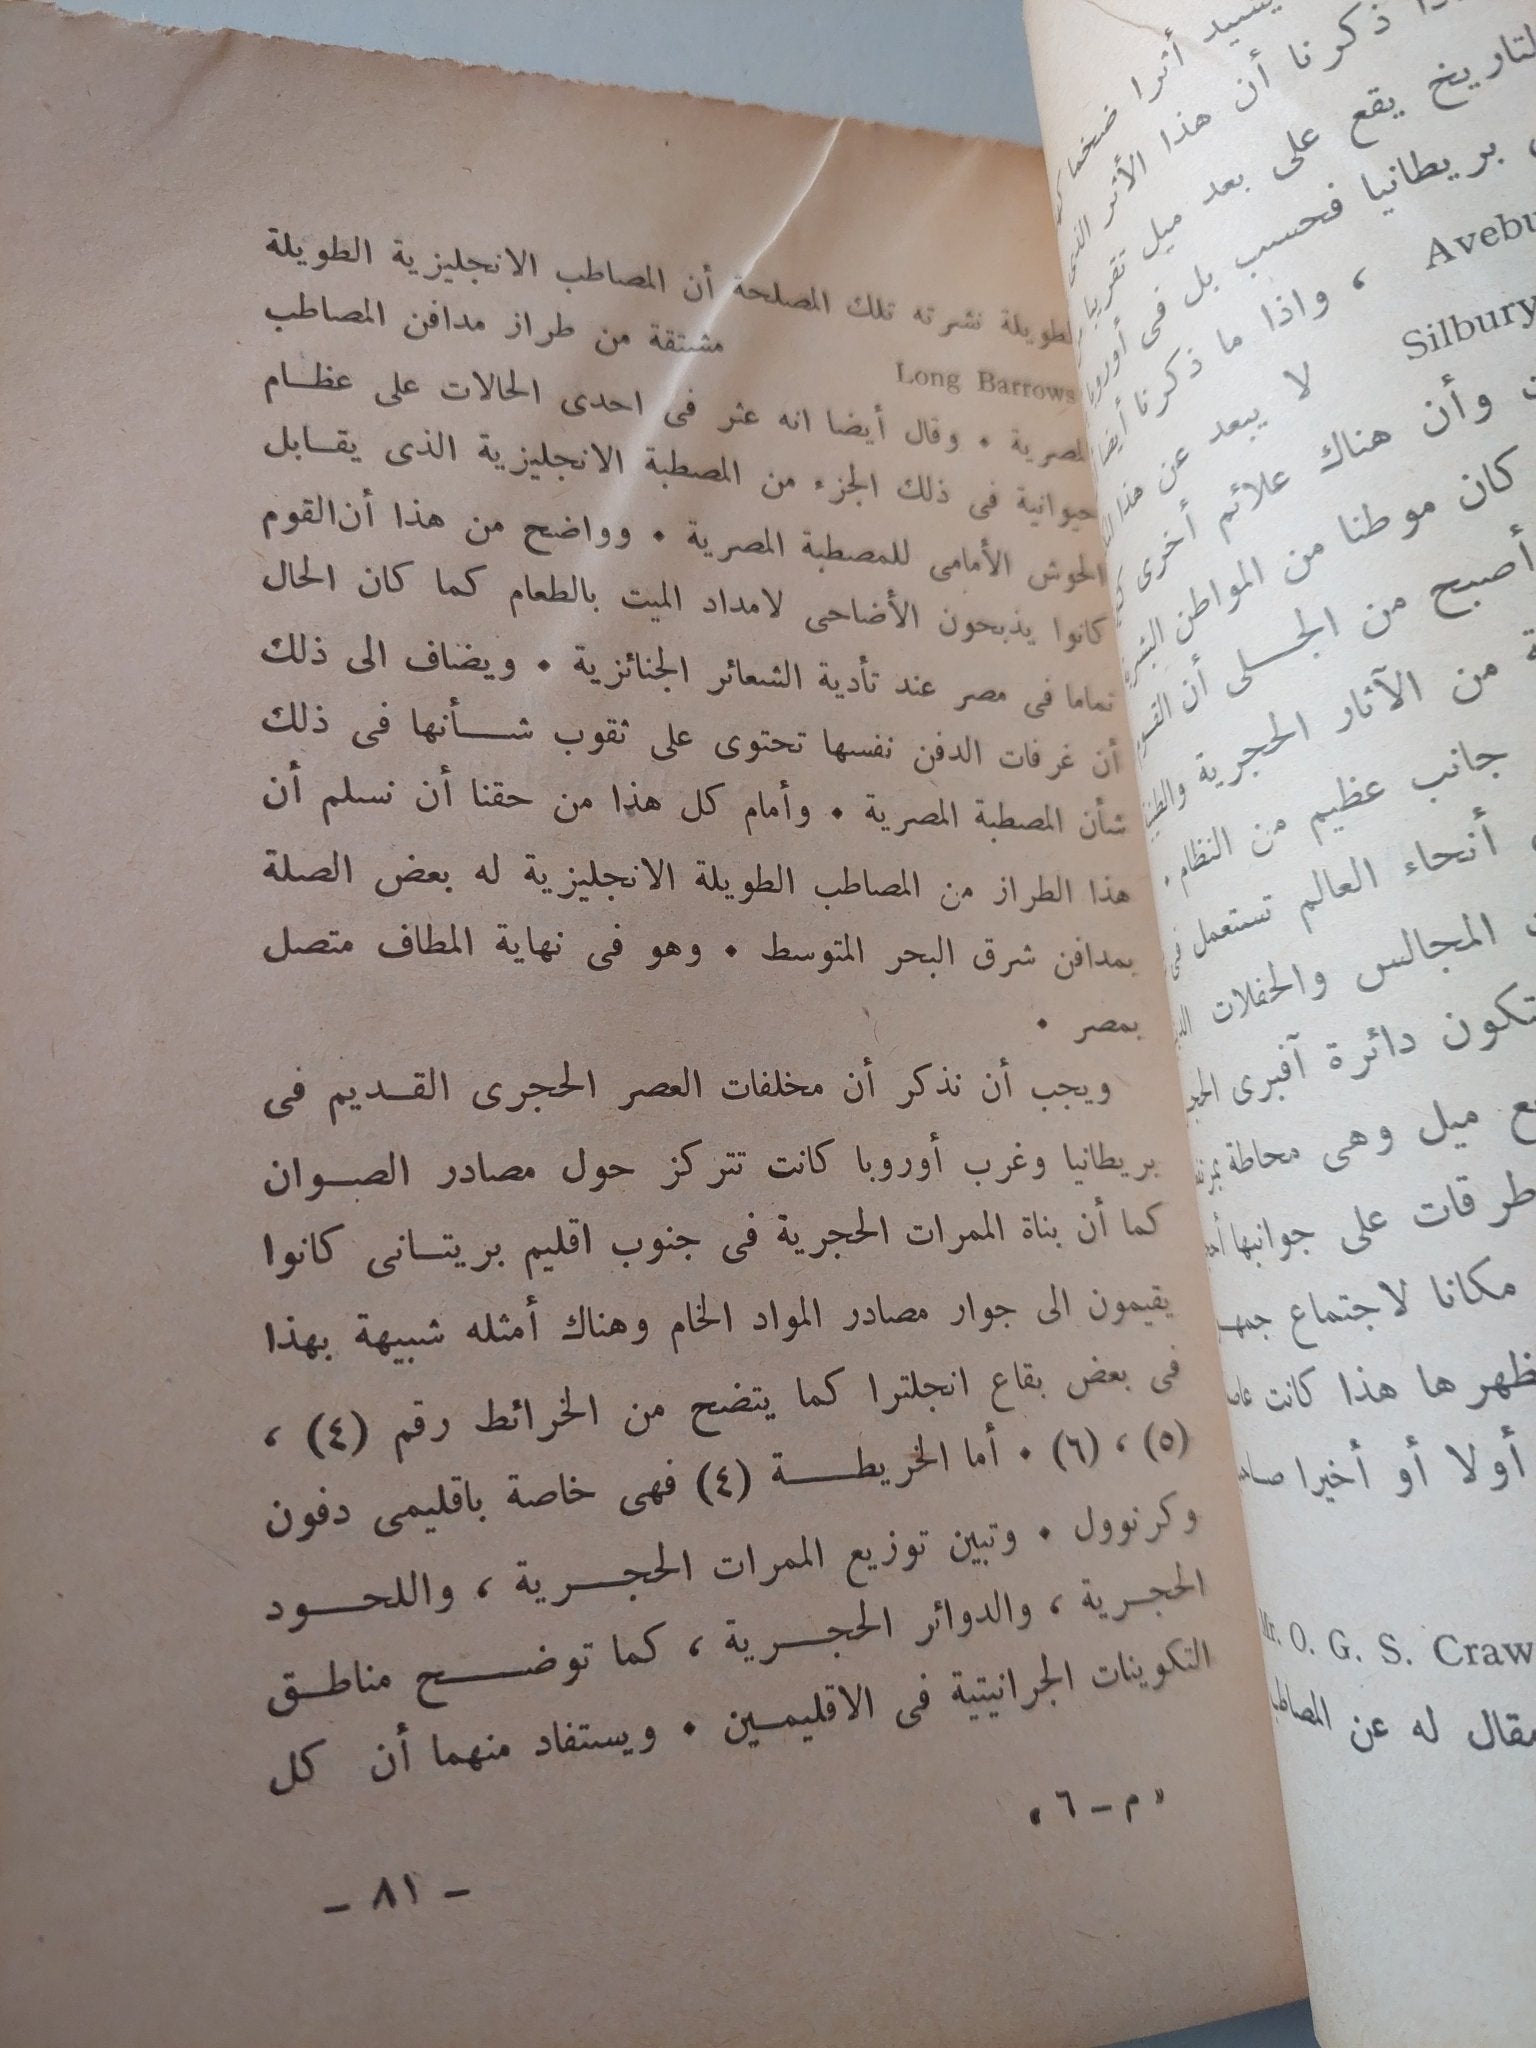 يشيد أثرا ضخما
ذكرنا أن هذا الأثر الذى
التاريخ يقع على بعد ميل تقريبا
بريطانيا فحسب بل فى أوروبا
، واذا ما ذكرنا أيضا
لا يبعد عن هذا Silbury
وأن هناك علائم أخرى
كان موطنا من المواطن
أصبح من الجلى أن
من الآثار الحجرية
جانب عظيم من النظام .
أنحاء العالم تستعمل فى
المجالس والحفلات
دائرة آفبرى
ميل وهى محاطة
طرقات على جوانبها
مكانا لاجتماع
هذا كانت
أولا أو أخيرا
Mr. O. G. S.
مقال له عن المصاطب
الطويلة نشرته تلك المصلحة أن المصاطب الانجليزية الطويلة
Long Barrows مشتقة من طراز مدافن المصاطب
المصرية . وقال أيضا انه عثر فى احدى الحالات على عظام
حيوانية فى ذلك الجزء من المصطبة الانجليزية الذى يقابل
الحوش الأمامى للمصطبة المصرية . وواضح من هذا أن القوم
كانوا يذبحون الأضاحى لامداد الميت بالطعام كما كان الحال
تماما فى مصر عند تأدية الشعائر الجنائزية . ويضاف الى ذلك
أن غرفات الدفن نفسها تحتوى على ثقوب شأنها فى ذلك
شأن المصطبة المصرية . وأمام كل هذا من حقنا أن نسلم أن
هذا الطراز من المصاطب الطويلة الانجليزية له بعض الصلة
بمدافن شرق البحر المتوسط . وهو فى نهاية المطاف متصل
بمصر .
ويجب أن نذكر أن مخلفات العصر الحجرى القديم فى
بريطانيا وغرب أوروبا كانت تتركز حول مصادر الصوان
كما أن بناة الممرات الحجرية فى جنوب اقليم بريتانى كانوا
يقيمون الى جوار مصادر المواد الخام وهناك أمثله شبيهة بهذا
فى بعض بقاع انجلترا كما يتضح من الخرائط رقم (٤) ،
(٥) ، (٦) . أما الخريطة (٤) فهى خاصة باقليمى دفون
وكرنوول . وتبين توزيع الممرات الحجرية ، واللحود
الحجرية ، والدوائر الحجرية ، كما توضح مناطق
التكوينات الجرانيتية فى الاقليمين . ويستفاد منهما أن كل
« م – ٦ »
– ٨١ –